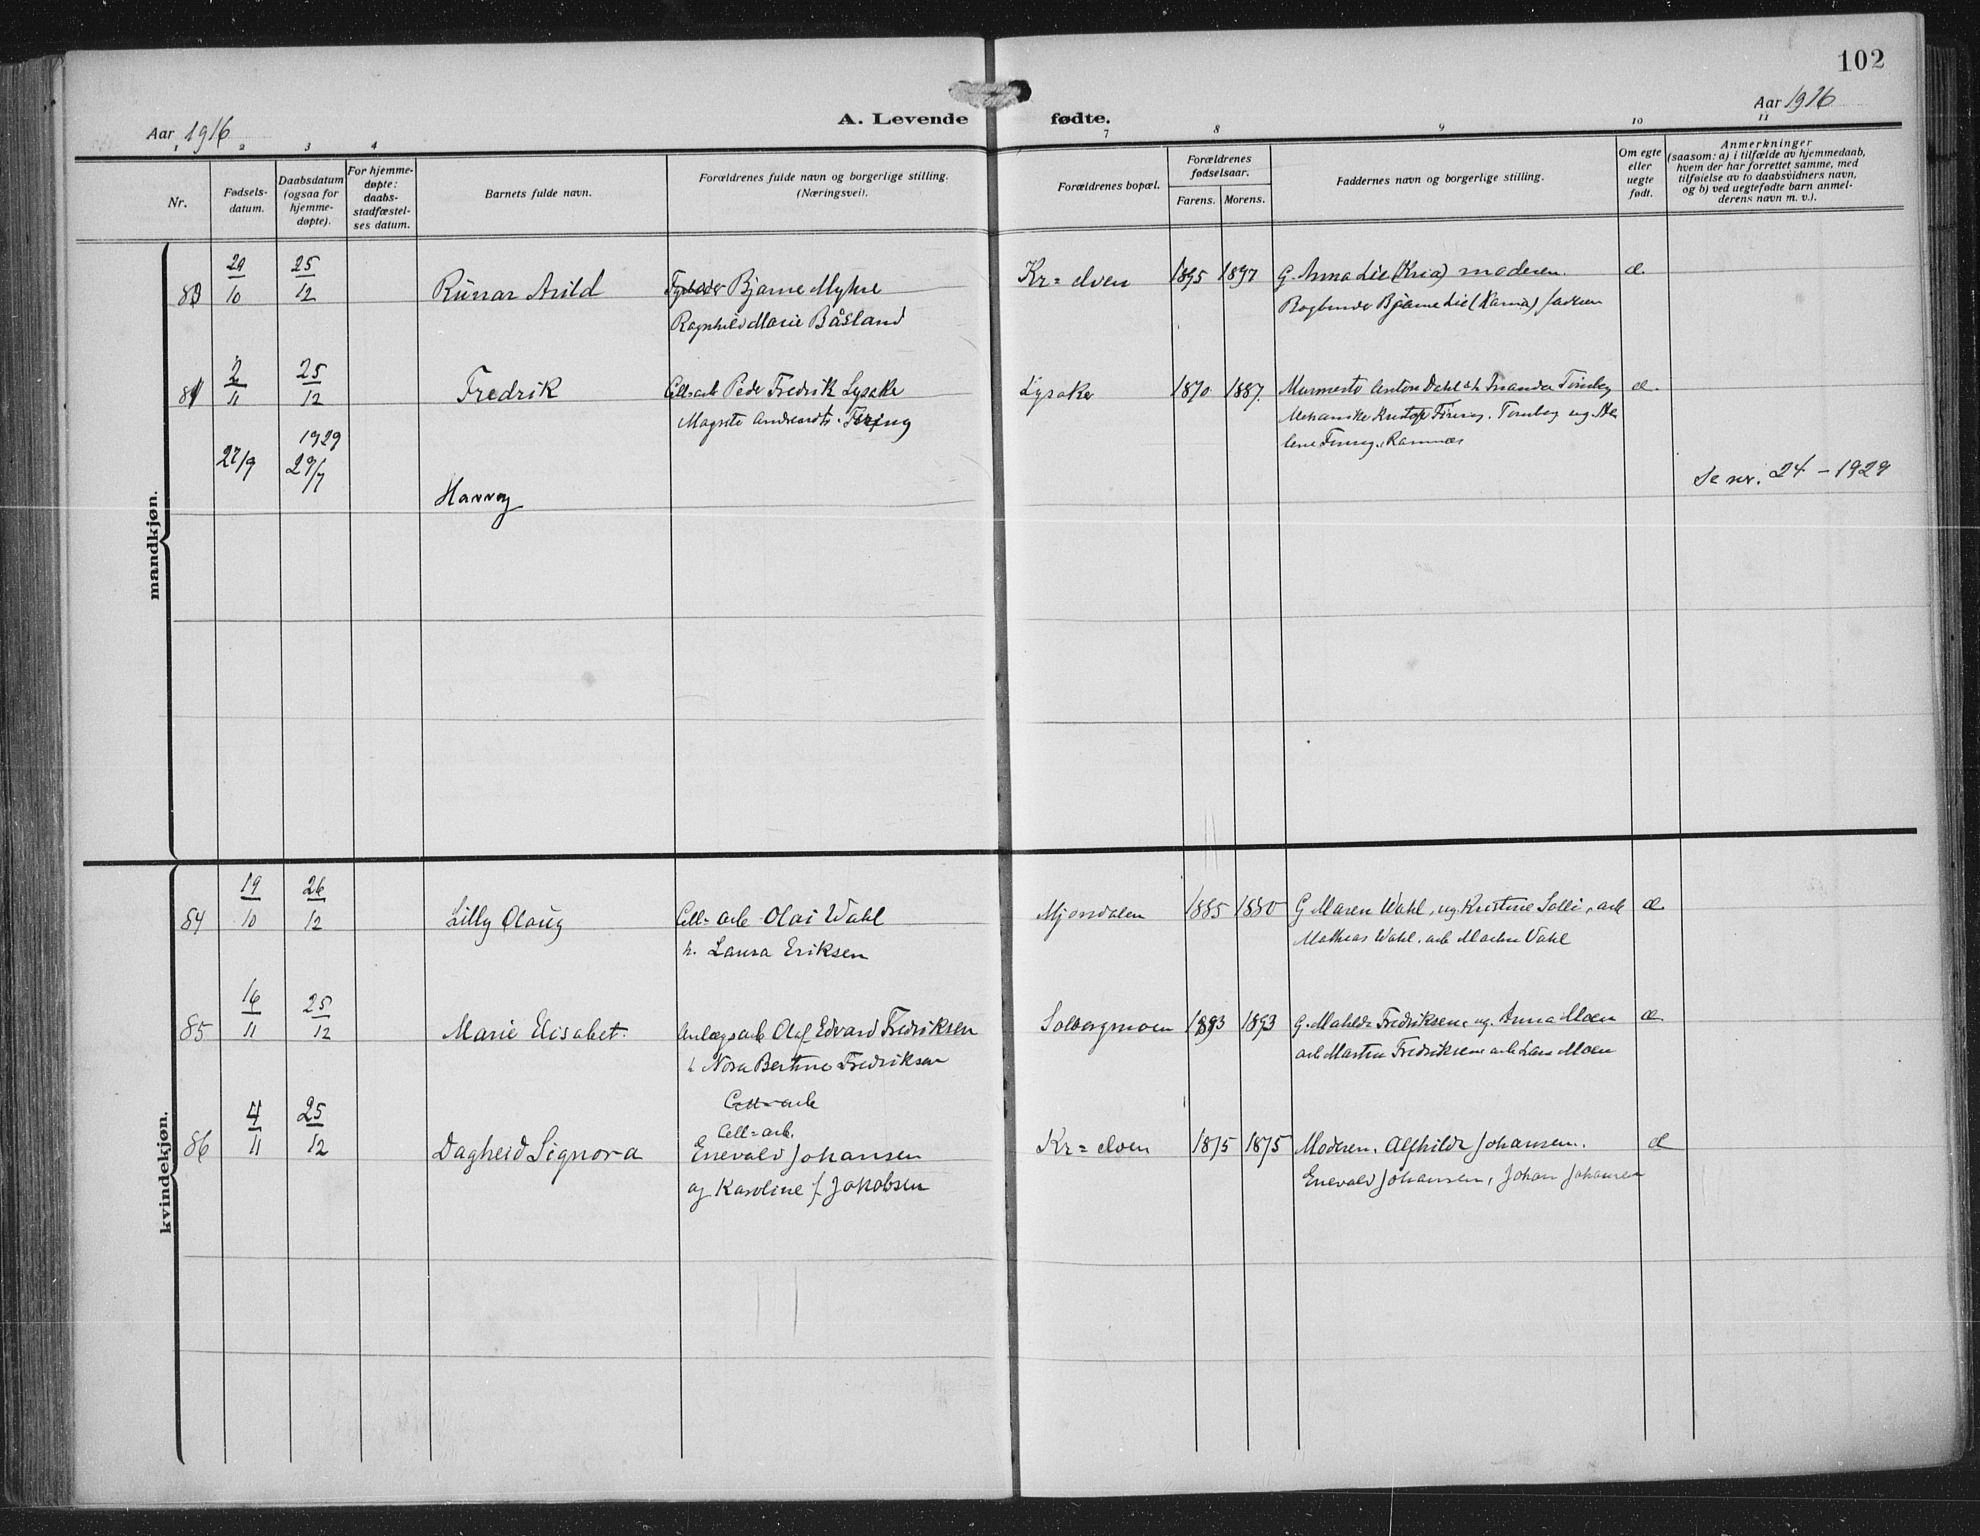 102
Aar 1916
A. Levende fødte.
Aar 1916
1 2 3 4 7 8 9 10 11
Nr.
Fødsels-
datum.
Daabsdatum
(ogsaa for
hjemme-
døpte).
For hjemme-
døpte:
daabs-
stadfæstel-
ses datum.
Barnets fulde navn.
Forældrenes fulde navn og borgerlige stilling.
(Næringsvei).
Forældrenes bopæl.
Forældrenes
fødselsaar.
Farens. Morens.
Faddernes navn og borgerlige stilling.
Om egte
eller
uegte
født.
Anmerkninger
(saasom: a) i tilfælde av hjemmedaab,
hvem der har forrettet samme, med
tilføielse av to daabsvidners navn,
og b) ved uegtefødte barn anmel-
derens navn m. v.).
mandkjøn.
83 29/10 25/12 Runar Arild Bjarne Myhre Kr=elven 1895 1897 G. Anna Lie (Kria) moderen. æ
Ragnhild Marie Båsland Bjarne Lie faderen
2/11 25/12 Fredrik Cell=arb Peder Fredrik Lysaker Lysaker 1870 1887. Anton Dahl æ
Magnete
27/9 1929 29/7 Harry Se nr. 24 - 1929
kvindekjøn.
84 19/10 26/12 Lilly Olaug Cell=arb Olai Wahl Mjøndalen 1885 1880 G Maren Wahl, ug. Kristine Solli, arb æ
h. Laura Eriksen Mathias Wahl, arb Martin Vahl
85 16/11 25/12 Marie Elisabet. Anlægsarb Olaf Edvard Fredriksen Solbergmoen 1893 1893 G. Mathilde Fredriksen, ug. Anna Moen æ
h Nora Bertine Fredriksen arb Martin Fredriksen arb Lars Moen
Cell=arb
Cell=arb.
86 4/11 25/12 Dagheid Signora Enevald Johansen Kr=elven 1875 1875 Moderen, Alfhilde Johansen. æ
og Karoline f. Jakobsen Enevald Johansen, Johan Johansen